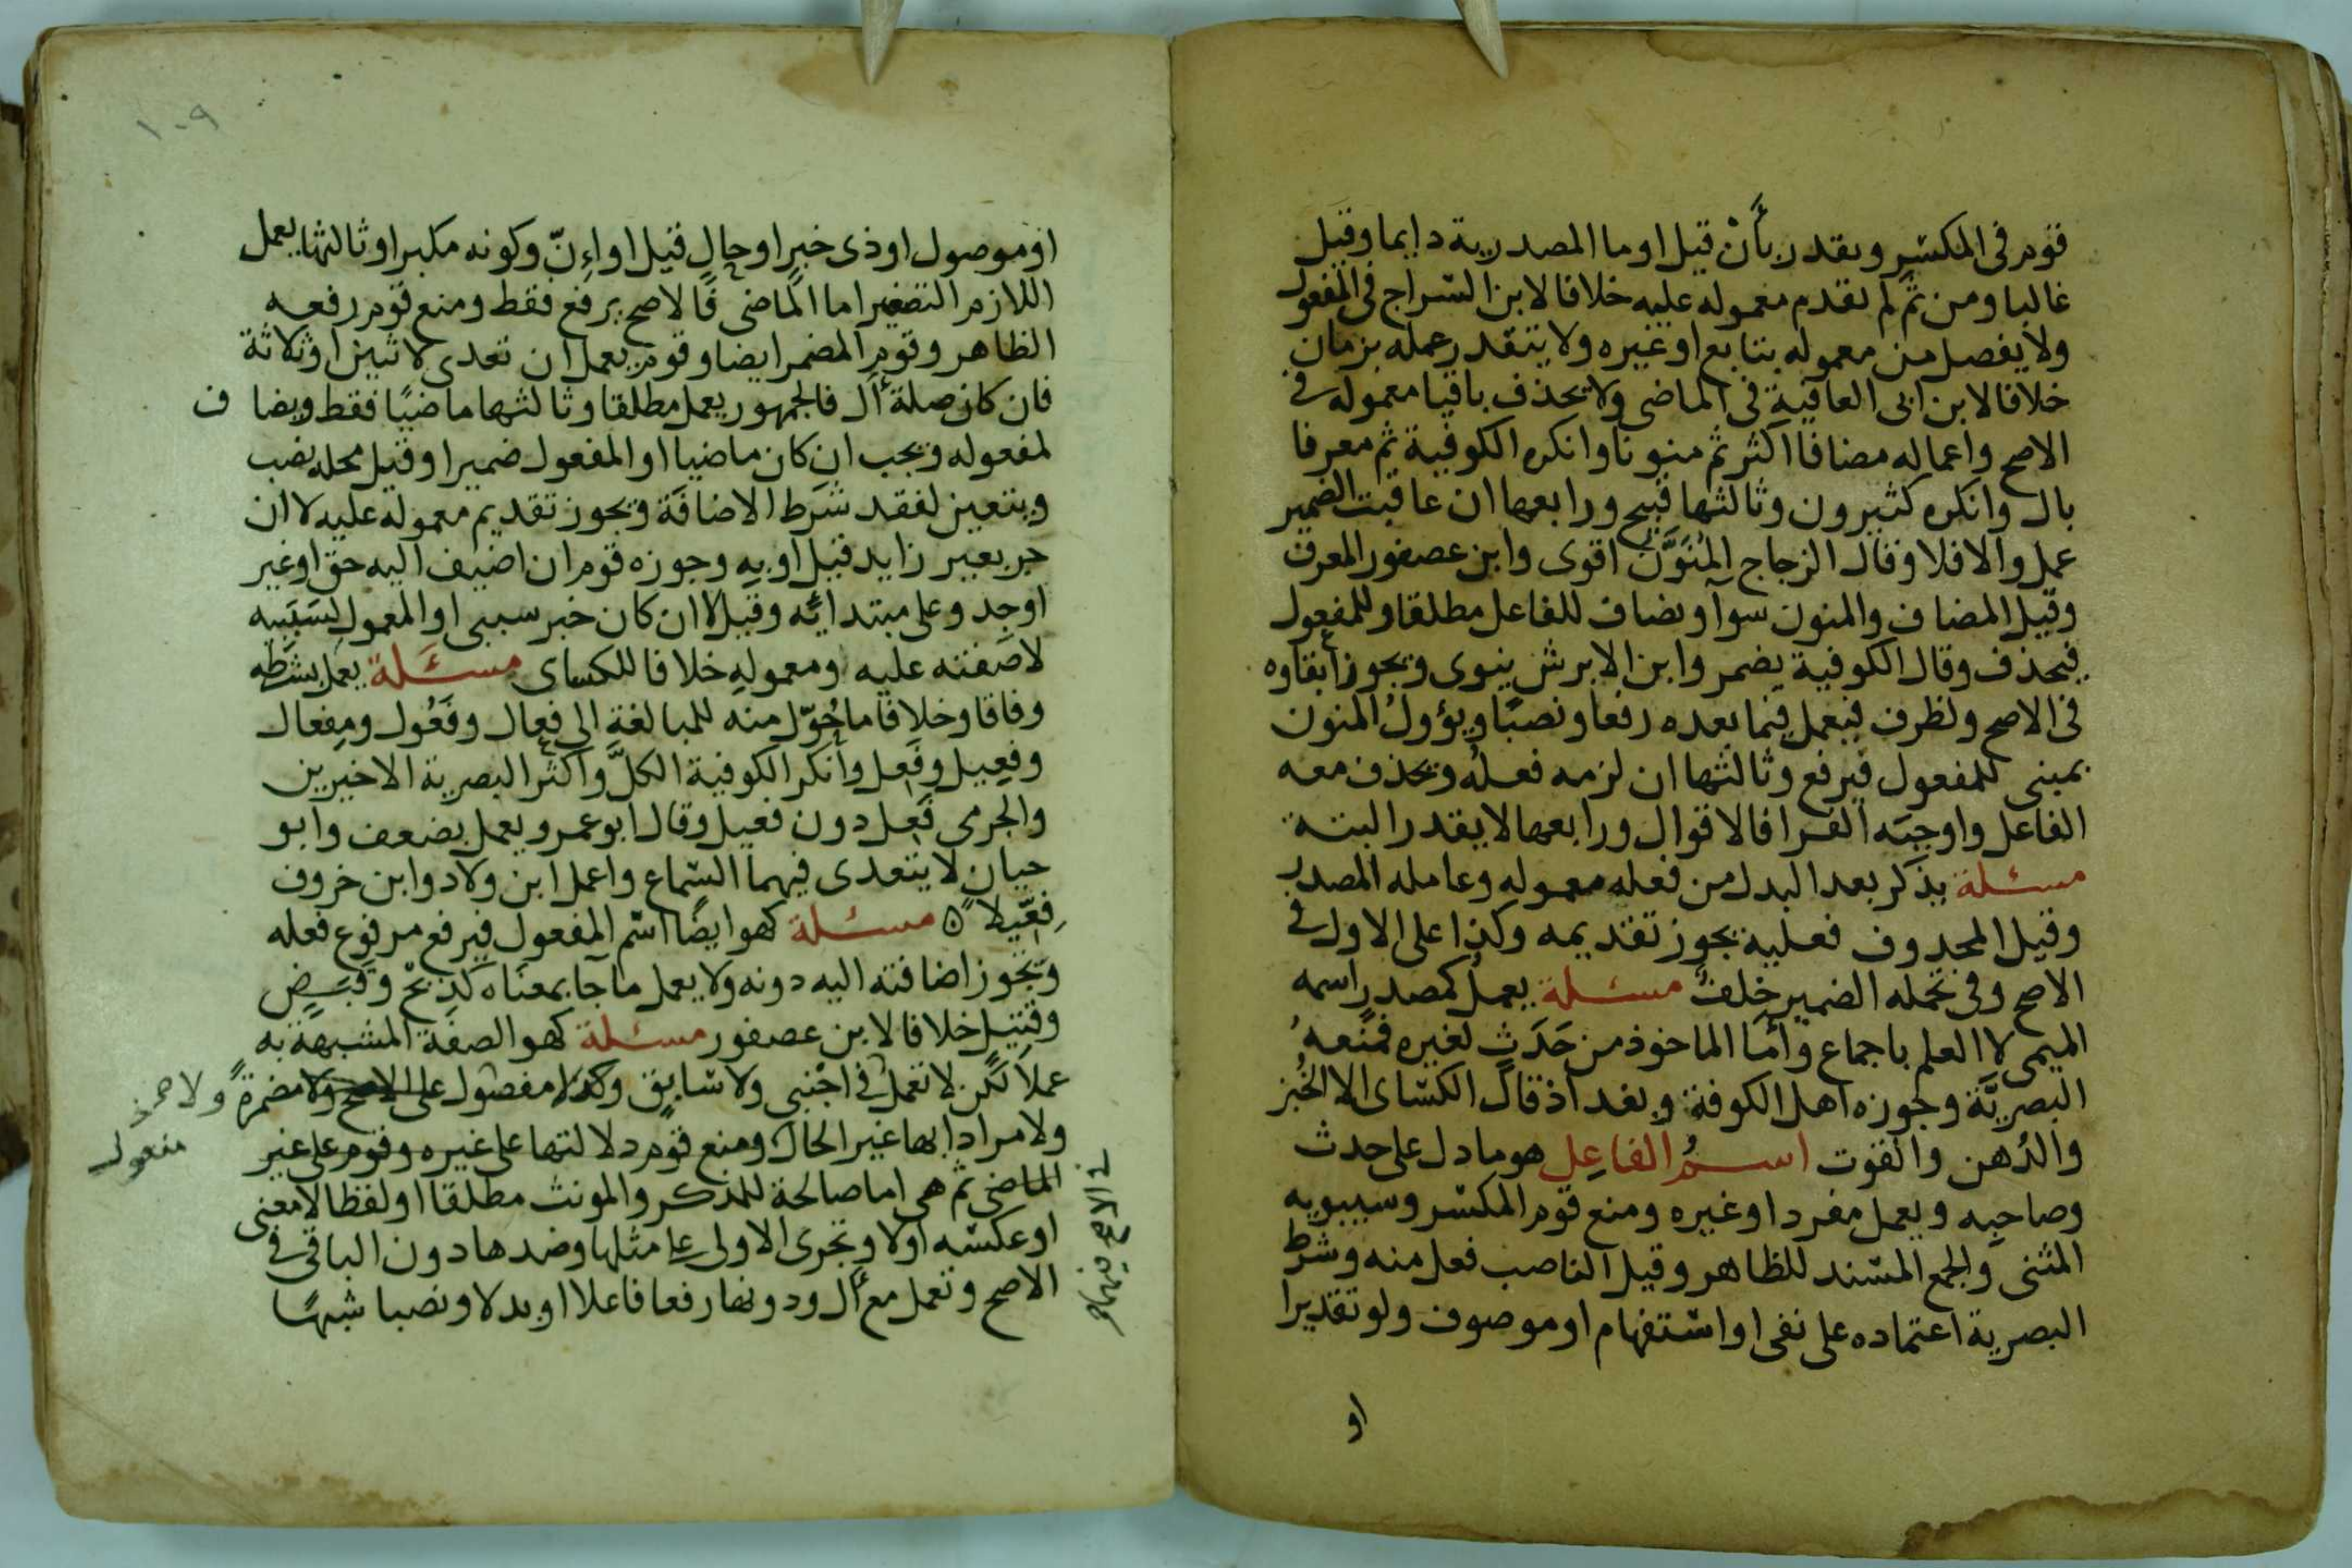 قوم فى المكسّر ويقدر بأَنْ قيل او ما المصدرية دايما وقيل
غالبا ومن ثَمّ لم يقدم معموله عليه خلافا لابن السّراج فى المفعول
ولا يفصل من معموله بتابع او غيره ولا يتقدر عمله بزمان
خلافا لابن ابى العافية فى الماضى ولا يحذف باقيا معموله فى
الاصح واعماله مضافا اكثر ثم منونا وانكره الكوفية ثم معرفا
بال وانكره كثيرون وثالثها قبيح ورابعها ان عاقبت الضمير
عمل والا فلا وقال الزجاج المُنَوَّن اقوى وابن عصفور المعرف
وقيل المضاف والمنون سوآ ويضاف للفاعل مطلقا وللمفعول
فيحذف وقال الكوفية يضمر وابن الابرش ينوى ويجوز ابقاوه
فى الاصح ولظرف فيعمل فيما بعده رفعا ونصبًا ويؤول المنون
بمبنى للمفعول فيرفع وثالثها ان لزمه فعلُه ويحذف معه
الفاعل واوجبَه الفرا فالاقوال ورابعها لا يقدر البتة
مسئلة يذكر بعد البدل من فعله معموله وعامله المصدر
وقيل المحدوف فعليه يجوز تقديمه وكذا على الاول فى
الاصح وفى تحمله الضمير خلفٌ مسئلة يعمل كمصدر اسمه
الميمى لا العلم باجماع وأمّا الماخوذ من حَدَثٍ لغيره فمنعهُ
البصريَّة وجوزه اهل الكوفة وبغداذ قال الكسّاى الا الخُبز
والدُهن والقوت اسمُ الفاعِل هو ما دل على حدث
وصاحبِه ويعمل مفردا او غيره ومنع قوم المكسّر وسيبويه
المثنى والجمع المسّند للظاهر وقيل الناصب فعل منه وشرط
البصرية اعتماده على نفى او استفهام او موصوف ولو تقديرا
او
١٠٩
او موصول او ذى خبرٍ او حالٍ قيل او اءِنّ وكونه مكبرا وثالثها يعمل
اللازم التصغير اما الماضى فالاصح يرفع فقط ومنع قوم رفعه
الظاهر وقوم المضمر ايضا وقوم يعمل ان تعدى لاثنين او ثلاثة
فان كان صلة أل فالجمهور يعمل مطلقا وثالثها ماضيًا فقط ويضاف
لمفعوله ويجب ان كان ماضيا او المفعول ضميرا وقيل محله نصب
ويتعين لفقد شرط الاضافة ويجوز تقديم معموله عليه لا ان
جر بغير زايد قيل او بِهِ وجوزه قوم ان اضيف اليه حق او غير
او جِد وعلى مبتدائه وقيل لا ان كان خبر سببى او المعمول لسَبَبيه
لا صفته عليه ومعمولِهِ خلافا للكساى مسئلة يعمل بشرطه
وفاقا وخلافا ما حُوّل منه للمبالغة الى فعال وفَعُول ومفعال
وفعِيل وفَعِل وانكر الكوفية الكلَّ واكثر البصرية الاخيرين
والجرمى فَعِل دون فعيل وقال ابو عمرو يعمل بضعف وابو
حيان لا يتعدى فيهما السّماع واعمل ابن ولاد وابن خروف
فِعّيلا ه مسئلة كهو ايضًا اسْم المفعول فيرفع مرفوع فعله
وتجوز اضافته اليه دونه ولا يعمل ما جآ بمعنَاه كَذِبْحْ وقَبَضٍ
وقتيل خلافا لابن عصفور مسئلة كهو الصفَة المشبهة به
عملاً لكن لا تعمل فى اجْنبى ولا سَابق وكذا مفصول على الاصح ولا مضمرةً ولا
ولا مرادا بها غير الحال ومنع قوم دلالتها على غيره وقوم على غير
الماضى ثم هى اما صالحة للمذكر والمونث مطلقا او لفظا لا معنى
او عكسْه اولا وتجرى الاولى على مثلها وضدها دون الباقى فى
الاصح وتعمل مع أل ودونها رفعا فاعلا او بدلا ونصبا شبهًا
مفعول
فى الاصح فيهما